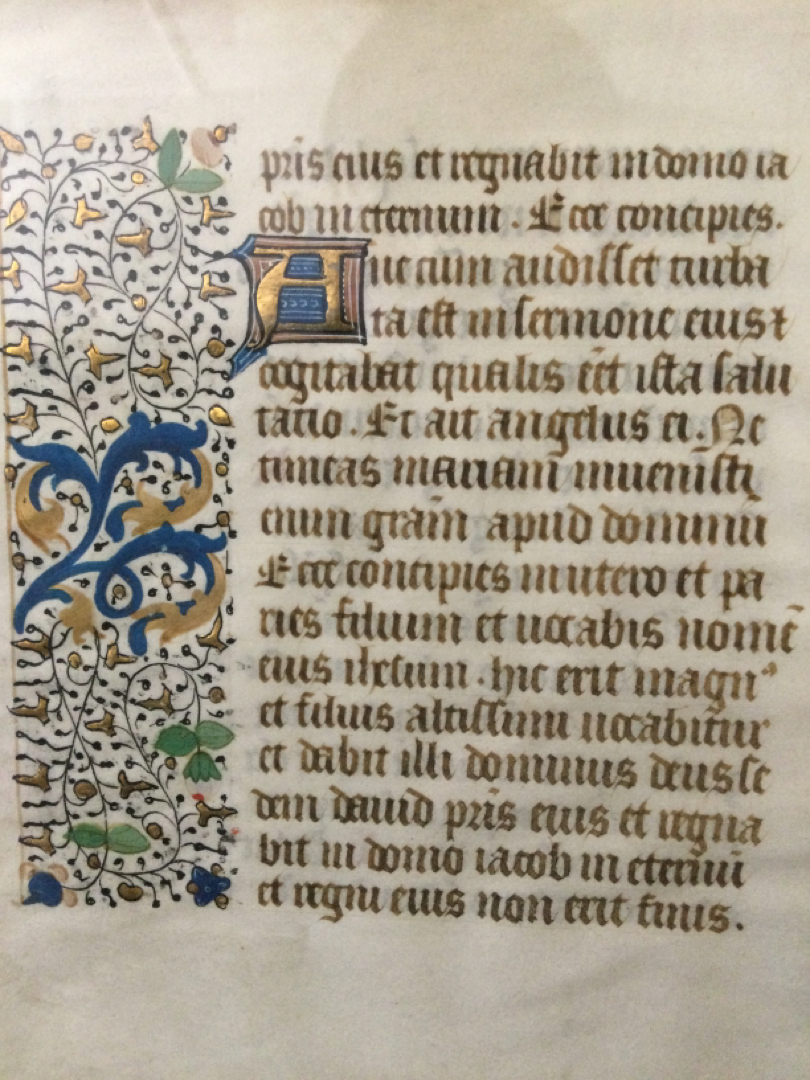 pr̄is eius et regnabit in domo ia
cob in eternum. Ecce concipies.
Aue cum audisset turba
ta est in sermone eius ⁊
cogitabat qualis eēt ista salu
tatio. Et ait angelus ei. Ne
timeas mariam̄ inuenisti
enim grām̄ apud dominū
Ecce concipies in utero et pa
ries filium et uocabis nomē
eius ihesum. hic erit magnꝰ
et filius altissimi uocabitur
et dabit illi dominus deus se
dem dauid pr̄is eius et regna
bit in domo iacob in eternū
et regni eius non erit finis.